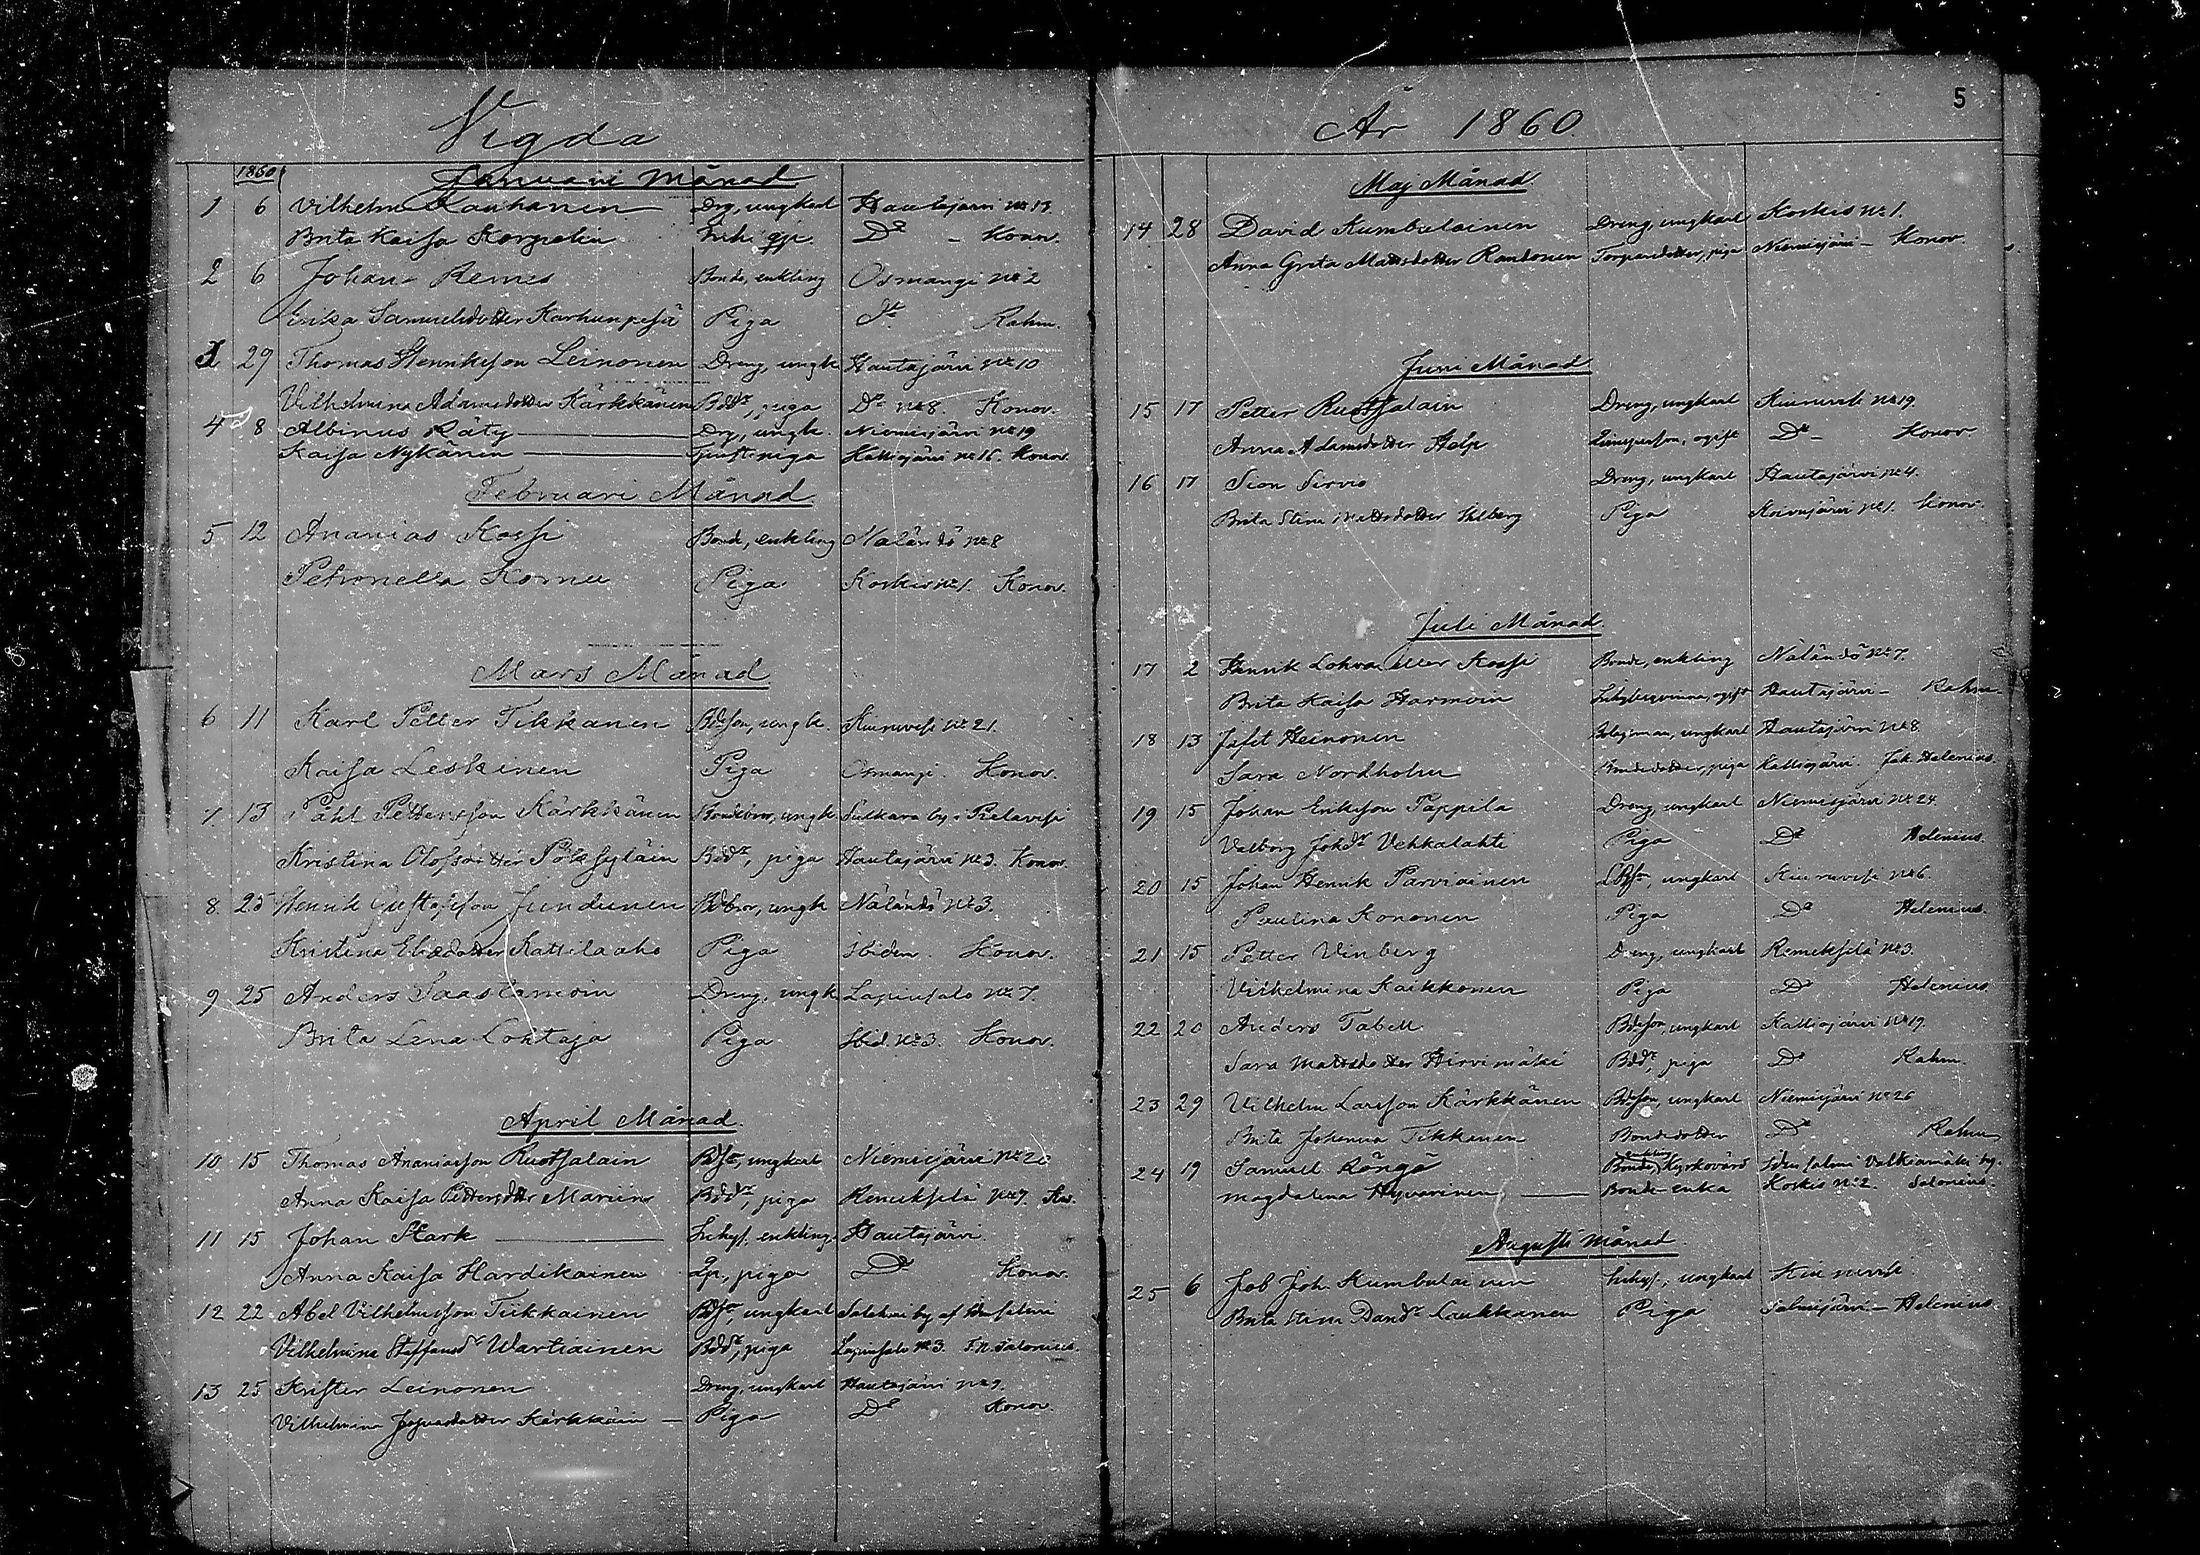 Vigda
1860
Januari Månad
1 6 Vilhelm Kauhanen Drg, ungkarl Hautajärvi No 13.
Brita Kaisa Korpelin Inh. Do - Konov.
2 6 Johan Remes Bonde, enkling Osmangi No 2
Erika Samuelsdotter Karhunpesä Piga Do Rahm.
3 29 Thomas Henriksson Leinonen Dreng, ungk Hautajärvi No 10
Vilhelmina Adamsdotter Kärkkänen Bddr, piga Do No 8. Konov.
4 8 Albinus Räty Drg, ungk. Niemisjärvi No 19
Kaisa Nykänen Tjenstepiga Kalliojärvi No 16. Konov.
Februari Månad
5 12 Ananias Kossi Bonde, enkling Naländö No 8
Petronella Komu Piga Koskis No 1. Konov.
Mars Månad
6 11 Karl Petter Tikkanen Bdeson, ungk. Kiuruvesi No 21.
Kaisa Leskinen Piga Osmangi. Konov.
7. 13 Påhl Pettersson Kärkkänen Bondebror, ungk Sulkava by i Pielavesi
Kristina Olofsdotter Pöksyläin Bddr, piga Hautajärvi No 3. Konov.
8. 25 Henrik Gustafsson Jundunen Bdbror, ungk Naländö No 3.
Kristina Eliædotter Kattilaaho Piga Ibidem. Konov.
9 25 Anders Saastamoin Dreng, ungk Lapinsalo No 7.
Brita Lena Lohtaja Piga Ibid. No 3. Konov.
April Månad.
10 15 Thomas Ananiasson Ruotsalain Bdsn, ungkarl Niemisjärvi No 20
Anna Kaisa Pettersdtr Mariin Bddr, piga Remeksela No 7. Kov.
11 15 Johan Stark Inhys, enkling. Hautajärvi.
Anna Kaisa Hardikainen Lp, piga Do Konov.
12 22 Abel Vilhelmsson Tikkainen Bdsn, ungkarl Salahmi by af Idensalmi
Vilhelmina Staffansdr Wartiainen Bddr, piga Lapinsalo No 3. F. N. Salonius.
13 25 Krister Leinonen Dreng, ungkarl Hautajärvi No 9.
Vilhelmina Josuadotter Kärkkäin Piga Do Konov.
År 1860.
5
Maj Månad.
14 28 David Kumbulainen Dreng, ungkarl Koskis No 1.
Anna Greta Mattsdotter Randonen Torparedotter, piga Niemisjärvi - Konov.
Juni Månad
15 17 Petter Ruotsalain Dreng, ungkarl Kiuruvesi No 19.
Anna Adamsdotter Help ogift Do - Konov.
16 17 Sion Sirvio Dreng, ungkarl Hautajärvi No 4.
Brita Stina Mattsdotter Ahlberg Piga Koivujärvi No 1. Konov.
Juli Månad.
17 2 Henrik Lohva eller Kossi Bonde, enkling Naländö No 7.
Brita Kaisa Harmoin Inhysqvinna, ogift Hautajärvi - Rahm.
18 13 Jafet Heinonen Bolagsman, ungkarl Hautajärvi No 8.
Sara Nordholm Bondedotter, piga Kalliojärvi. Joh. Helenius.
19 15 Johan Eriksson Pappila Dreng, ungkarl Niemisjärvi No 24.
Valborg Johdr Vehkalahti Piga Do Helenius.
20 15 Johan Henrik Parviainen ungkarl Kiuruvesi No 6.
Paulina Kononen Piga Do Helenius.
21 15 Petter Vinberg Dreng, ungkarl Remeksela No 3.
Vilhelmina Kaikkonen Piga Do Helenius
22 20 Anders Tabell Bdeson, ungkarl Kalliojärvi No 19.
Sara Mattsdotter Hirvimäki Bddr, piga Do Rahm.
23 29 Vilhelm Larsson Kärkkänen Bdeson, ungkarl Niemisjärvi No 26
Brita Johanna Tikkanen Bondedotter Do Rahm
24 19 Samuel Röngö Bonde, enkling Kyrkovärd Idensalmi Valkiamäki by.
Magdalena Hyvärinen Bonde enka Koskis No 2. Salonius.
Augusti Månad.
25 6 Job Joh. Kumbulainen Inhys, ungkarl Kiuruvesi.
Brita Stina Dandr Laukkanen Piga Salmisjärvi - Helenius